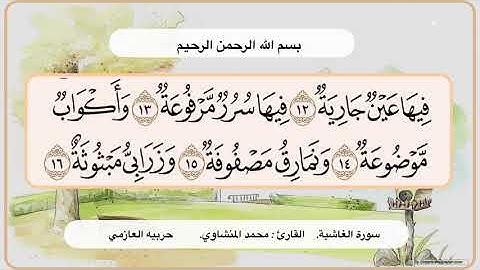 بسم الله الرحمن الرحيم
فِيهَا عَيْنٌ جَارِيَةٌ ١٢ فِيهَا سُرُرٌ مَّرْفُوعَةٌ ١٣ وَأَكْوَابٌ
مَّوْضُوعَةٌ ١٤ وَنَمَارِقُ مَصْفُوفَةٌ ١٥ وَزَرَابِيُّ مَبْثُوثَةٌ ١٦
سورة الغاشية. القارئ : محمد المنشاوي. حربيه العازمي